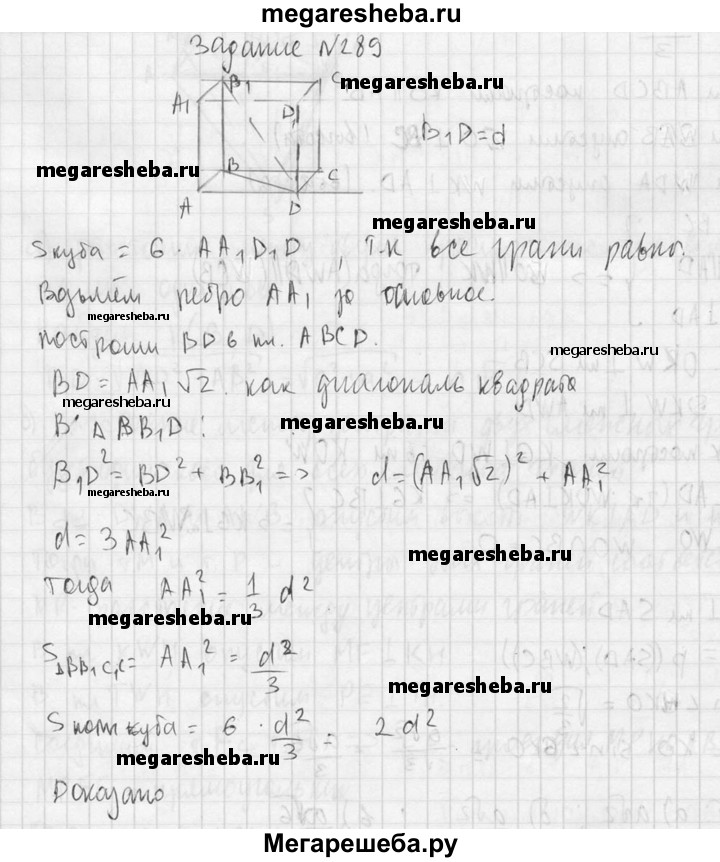 megaresheba.ru
Задание N289
B1 C1 megaresheba.ru
A1 D1
B1D=d
megaresheba.ru B C
A D
megaresheba.ru
Sкуба = 6 · AA1D1D , т.к все грани равны.
Возьмём ребро AA1 за основное.
megaresheba.ru
построим BD в пл. ABCD.
megaresheba.ru
BD = AA1√2. как диагональ квадрата
megaresheba.ru
В ΔBB1D: megaresheba.ru
B1D² = BD² + BB1² => d=(AA1√2)² + AA1²
megaresheba.ru
d= 3AA1²
megaresheba.ru
Тогда AA1² = 1/3 d²
megaresheba.ru
SΔBB1C1C= AA1² = d²/3
megaresheba.ru
Sполн куба = 6 · d²/3 = 2d²
megaresheba.ru
Доказано
Мегарешеба.ру